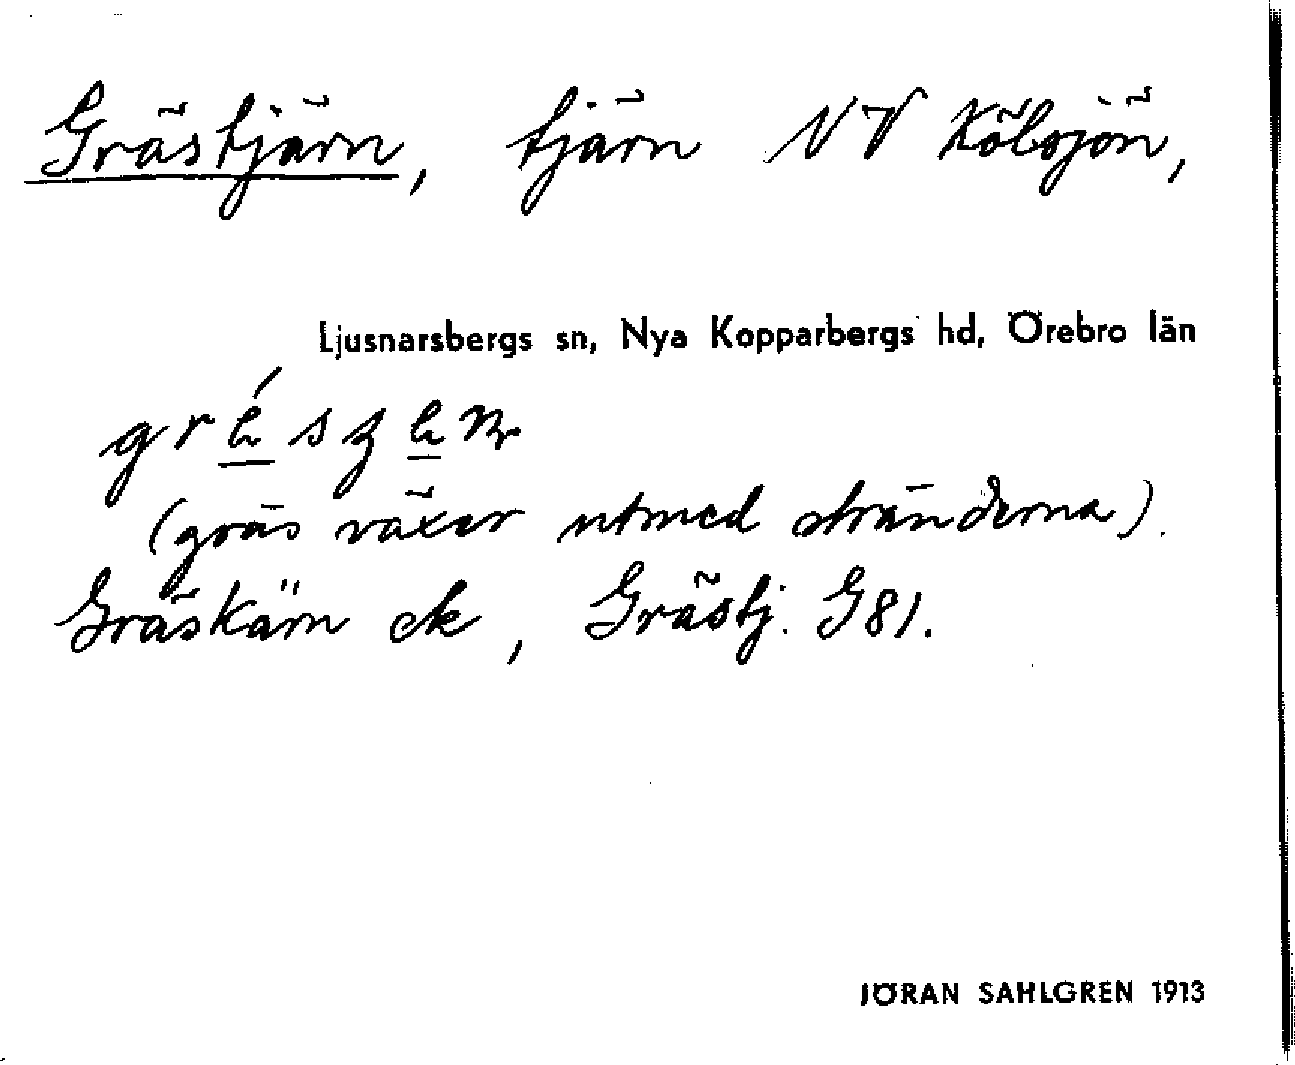 Grästjärn, tjärn NV Kölsjön,
Ljusnarsbergs sn, Nya Kopparbergs hd, Örebro län
(gräs växer utmed stränderna).
Gräskärn ek, Grästj. G81.
JÖRAN SAHLGREN 1913